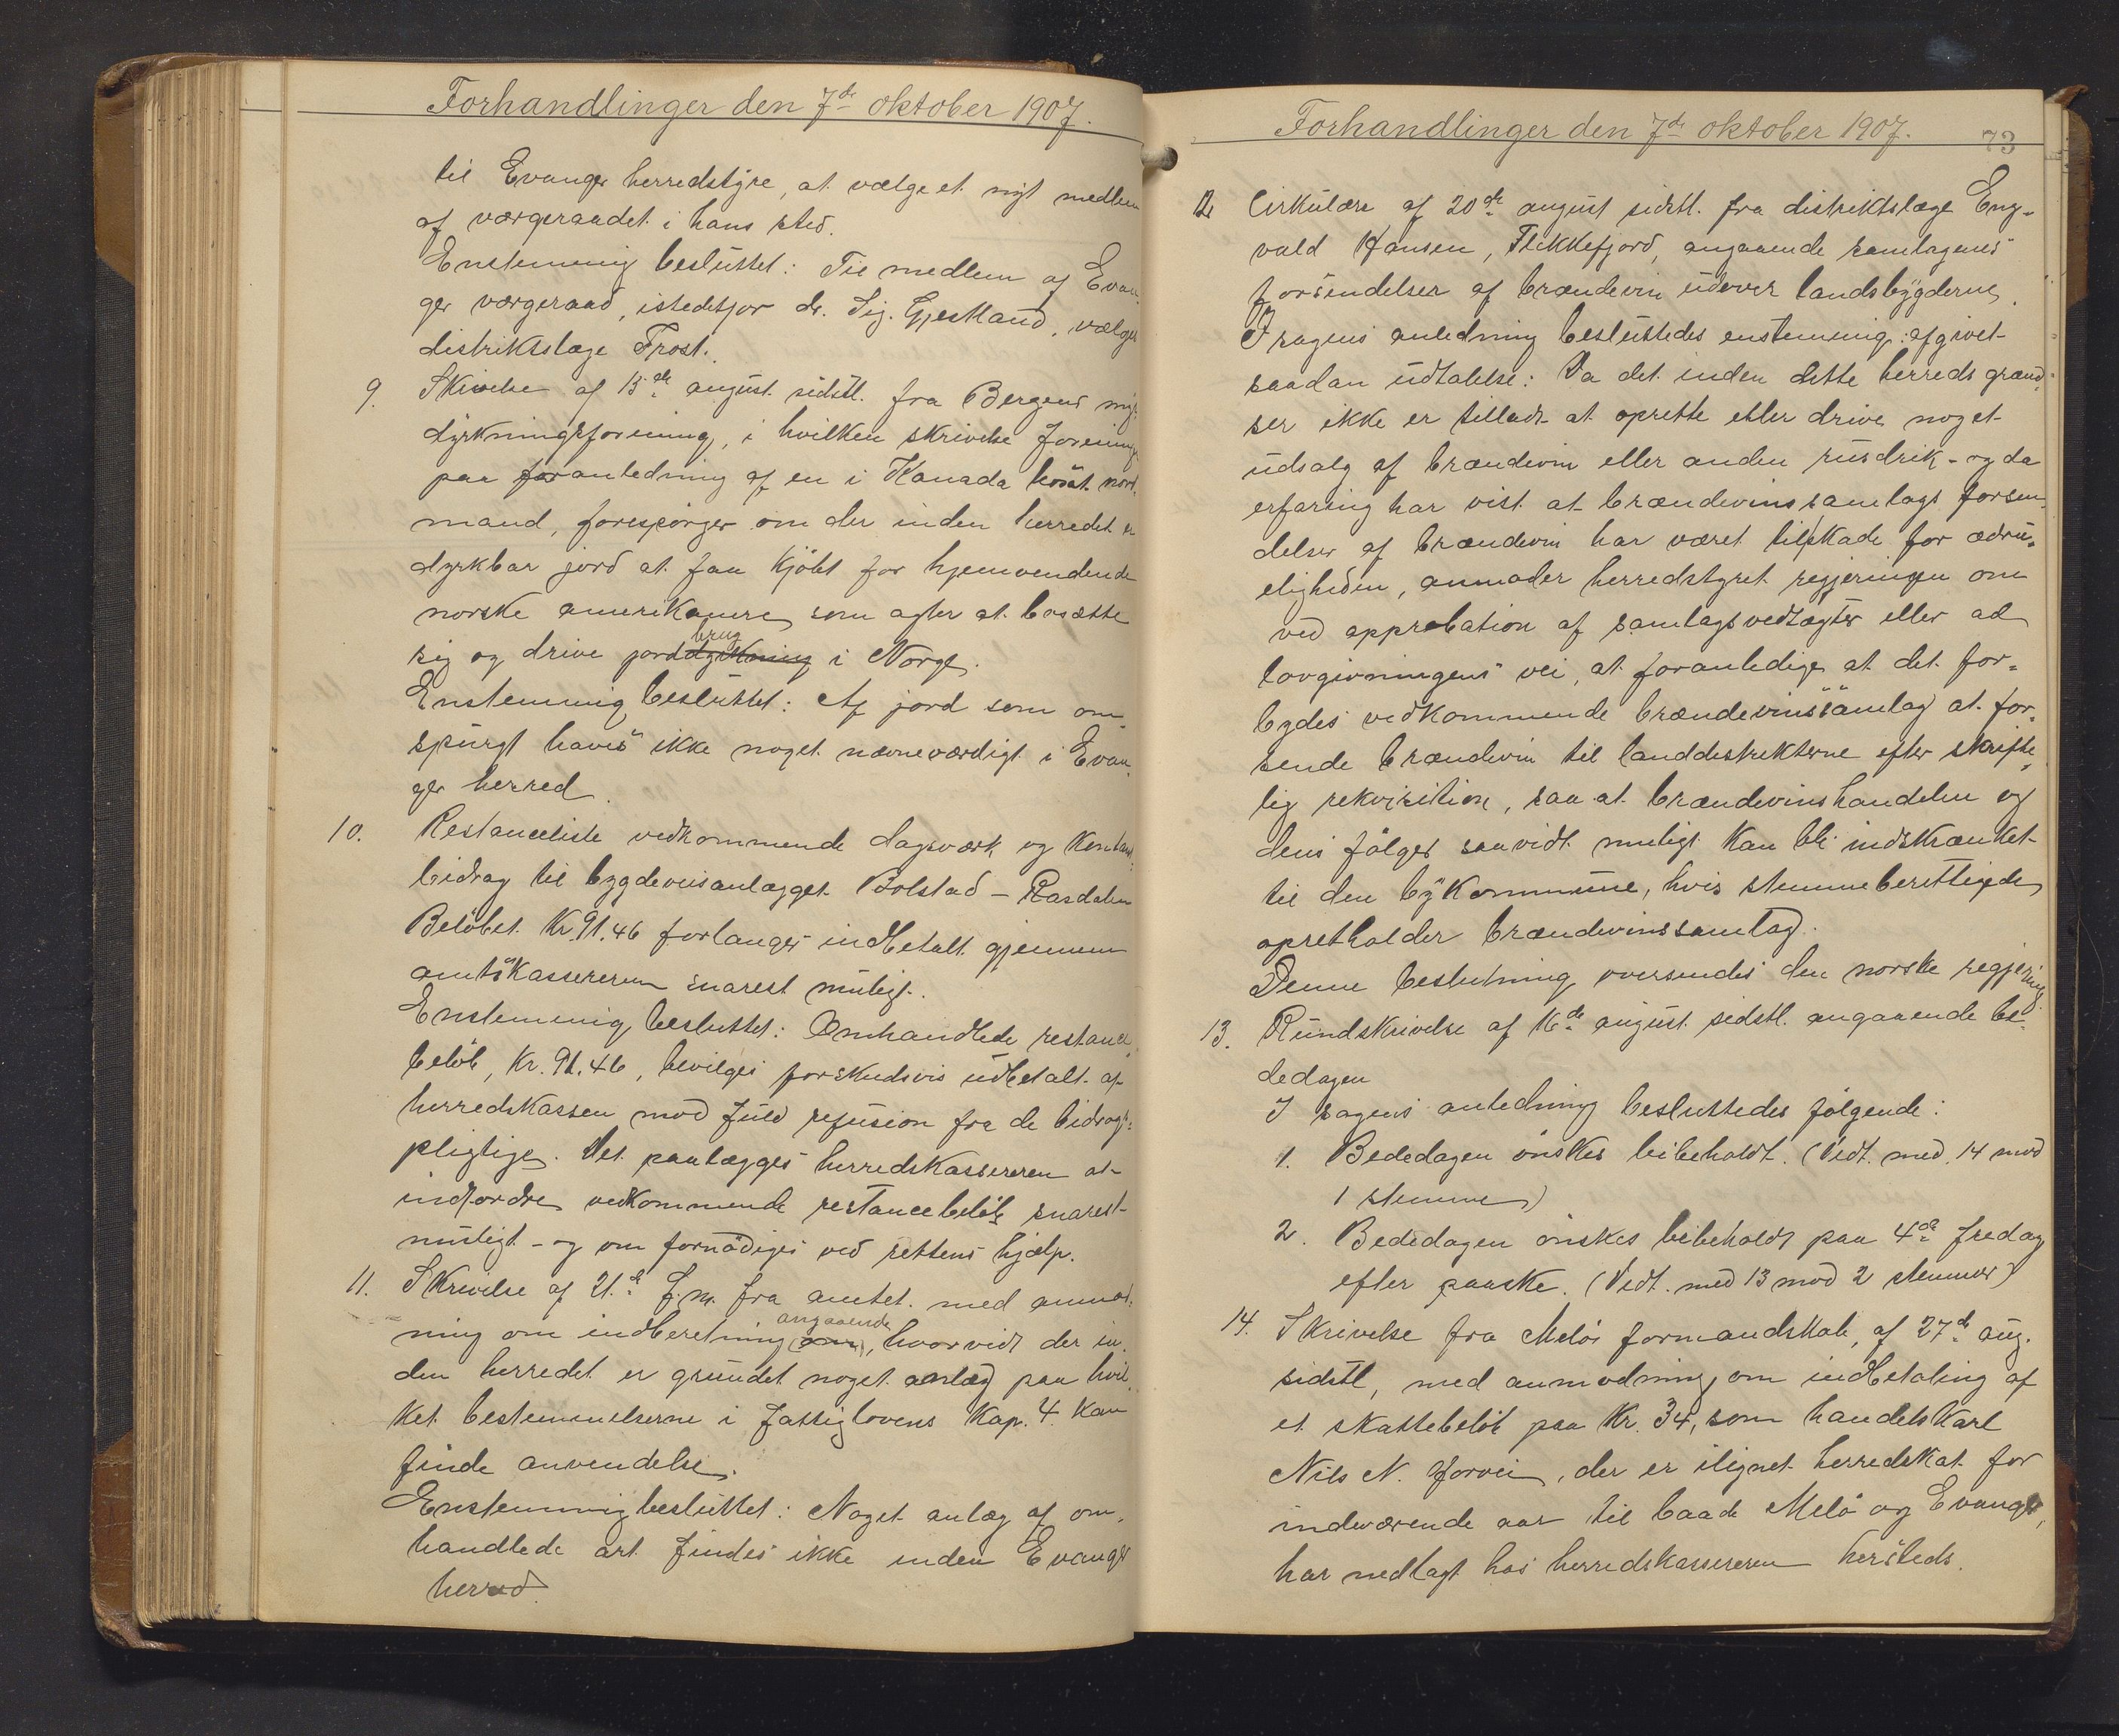 Forhandlinger den 7de oktober 1907.
til Evanger herredstyre, at vælge et nyt medlem
af værgeraadet i hans sted.
Enstemmig besluttet: Til medlem af Evan-
ger værgeraad, istedetfor dr. Sig. Gjestland, vælges
distriktslæge Frost.
9. Skrivelse af 13de august sidstl. fra Bergens myr-
dyrkningsforening, i hvilken skrivelse foreningen
paa foranledning af en i Kanada bosat nord-
mand, forespørger om der inden herredet er
dyrkbar jord at faa kjøbt for hjemvendende
norske amerikanere som agter at bosætte
brug
sig og drive jorddyrkning i Norge.
Enstemmig besluttet: Af jord som om-
spurgt haves ikke noget nævneværdigt i Evan-
ger herred.
10. Restanceliste vedkommende dagsværk og kontant-
bidrag til bygdeveisanlægget Bolstad – Rasdalen
Beløbet Kr. 91.46 forlanges indbetalt gjennem
amtskassereren snarest muligt.
Enstemmig besluttet: Omhandlede restance-
beløb, Kr. 91.46, bevilges forskudsvis udbetalt af
herredskassen mod fuld refusion fra de bidrags-
pligtige. Det paalægges herredskassereren at
indfordre vedkommende restancebeløb snarest
muligt – og om fornødiges ved rettens hjælp.
11. Skrivelse af 21de f.m. fra amtet med anmod-
angaaende
ning om indberetning (om), hvorvidt der in-
den herredet er grundet noget anlæg paa hvil-
ket bestemmelserne i fattiglovens Kap. 4 kan
finde anvendelse.
Enstemmig besluttet: Noget anlæg af om-
handlede art findes ikke inden Evanger
herred.
Forhandlinger den 7de oktober 1907.
73
12. Cirkulære af 20de august sidstl. fra distriktslæge Eng-
vald Hansen, Flekkefjord, angaaende samlagenes
forsendelser af brændevin udover landsbygderne.
I sagens anledning besluttedes enstemmig afgivet
saadan udtalelse: Da det inden dette herreds grænd-
ser ikke er tilladt at oprette eller drive noget
udsalg af brændevin eller anden rusdrik – og da
erfaring har vist at brændevinssamlags forsen-
delser af brændevin har været tilskade for ædru-
eligheden, anmoder herredstyret regjeringen om
ved approbation af samlagsvedtægter eller ad
lovgivningens vei, at foranledige at det for-
bydes vedkommende brændevinssamlag at for-
sende brændevin til landdistrikterne efter skrift-
lig rekvisition, saa at brændevinshandelen og
dens følger saavidt muligt kan bli indskrænket
til den bykommune, hvis stemmeberettigede
opretholder brændevinssamlag.
Denne beslutning oversendes den norske regjering.
13. Rundskrivelse af 16de august sidstl. angaaende be-
dedagen
I sagens anledning besluttedes følgende:
1. Bededagen ønskes beibeholdt. (Vedt. med 14 mod
1 stemme)
2. Bededagen ønskes beibeholdt paa 4de fredag
efter paaske. (Vedt. med 13 mod 2 stemmer)
14. Skrivelse fra Melø formandskab, af 27de aug.
sidstl, med anmodning om indbetaling af
et skattebeløb paa Kr. 34, som handelskarl
Nils N. Horvei, der er ilignet herredskat for
indeværende aar til baade Melø og Evanger,
har nedlagt hos herredskassereren hersteds.